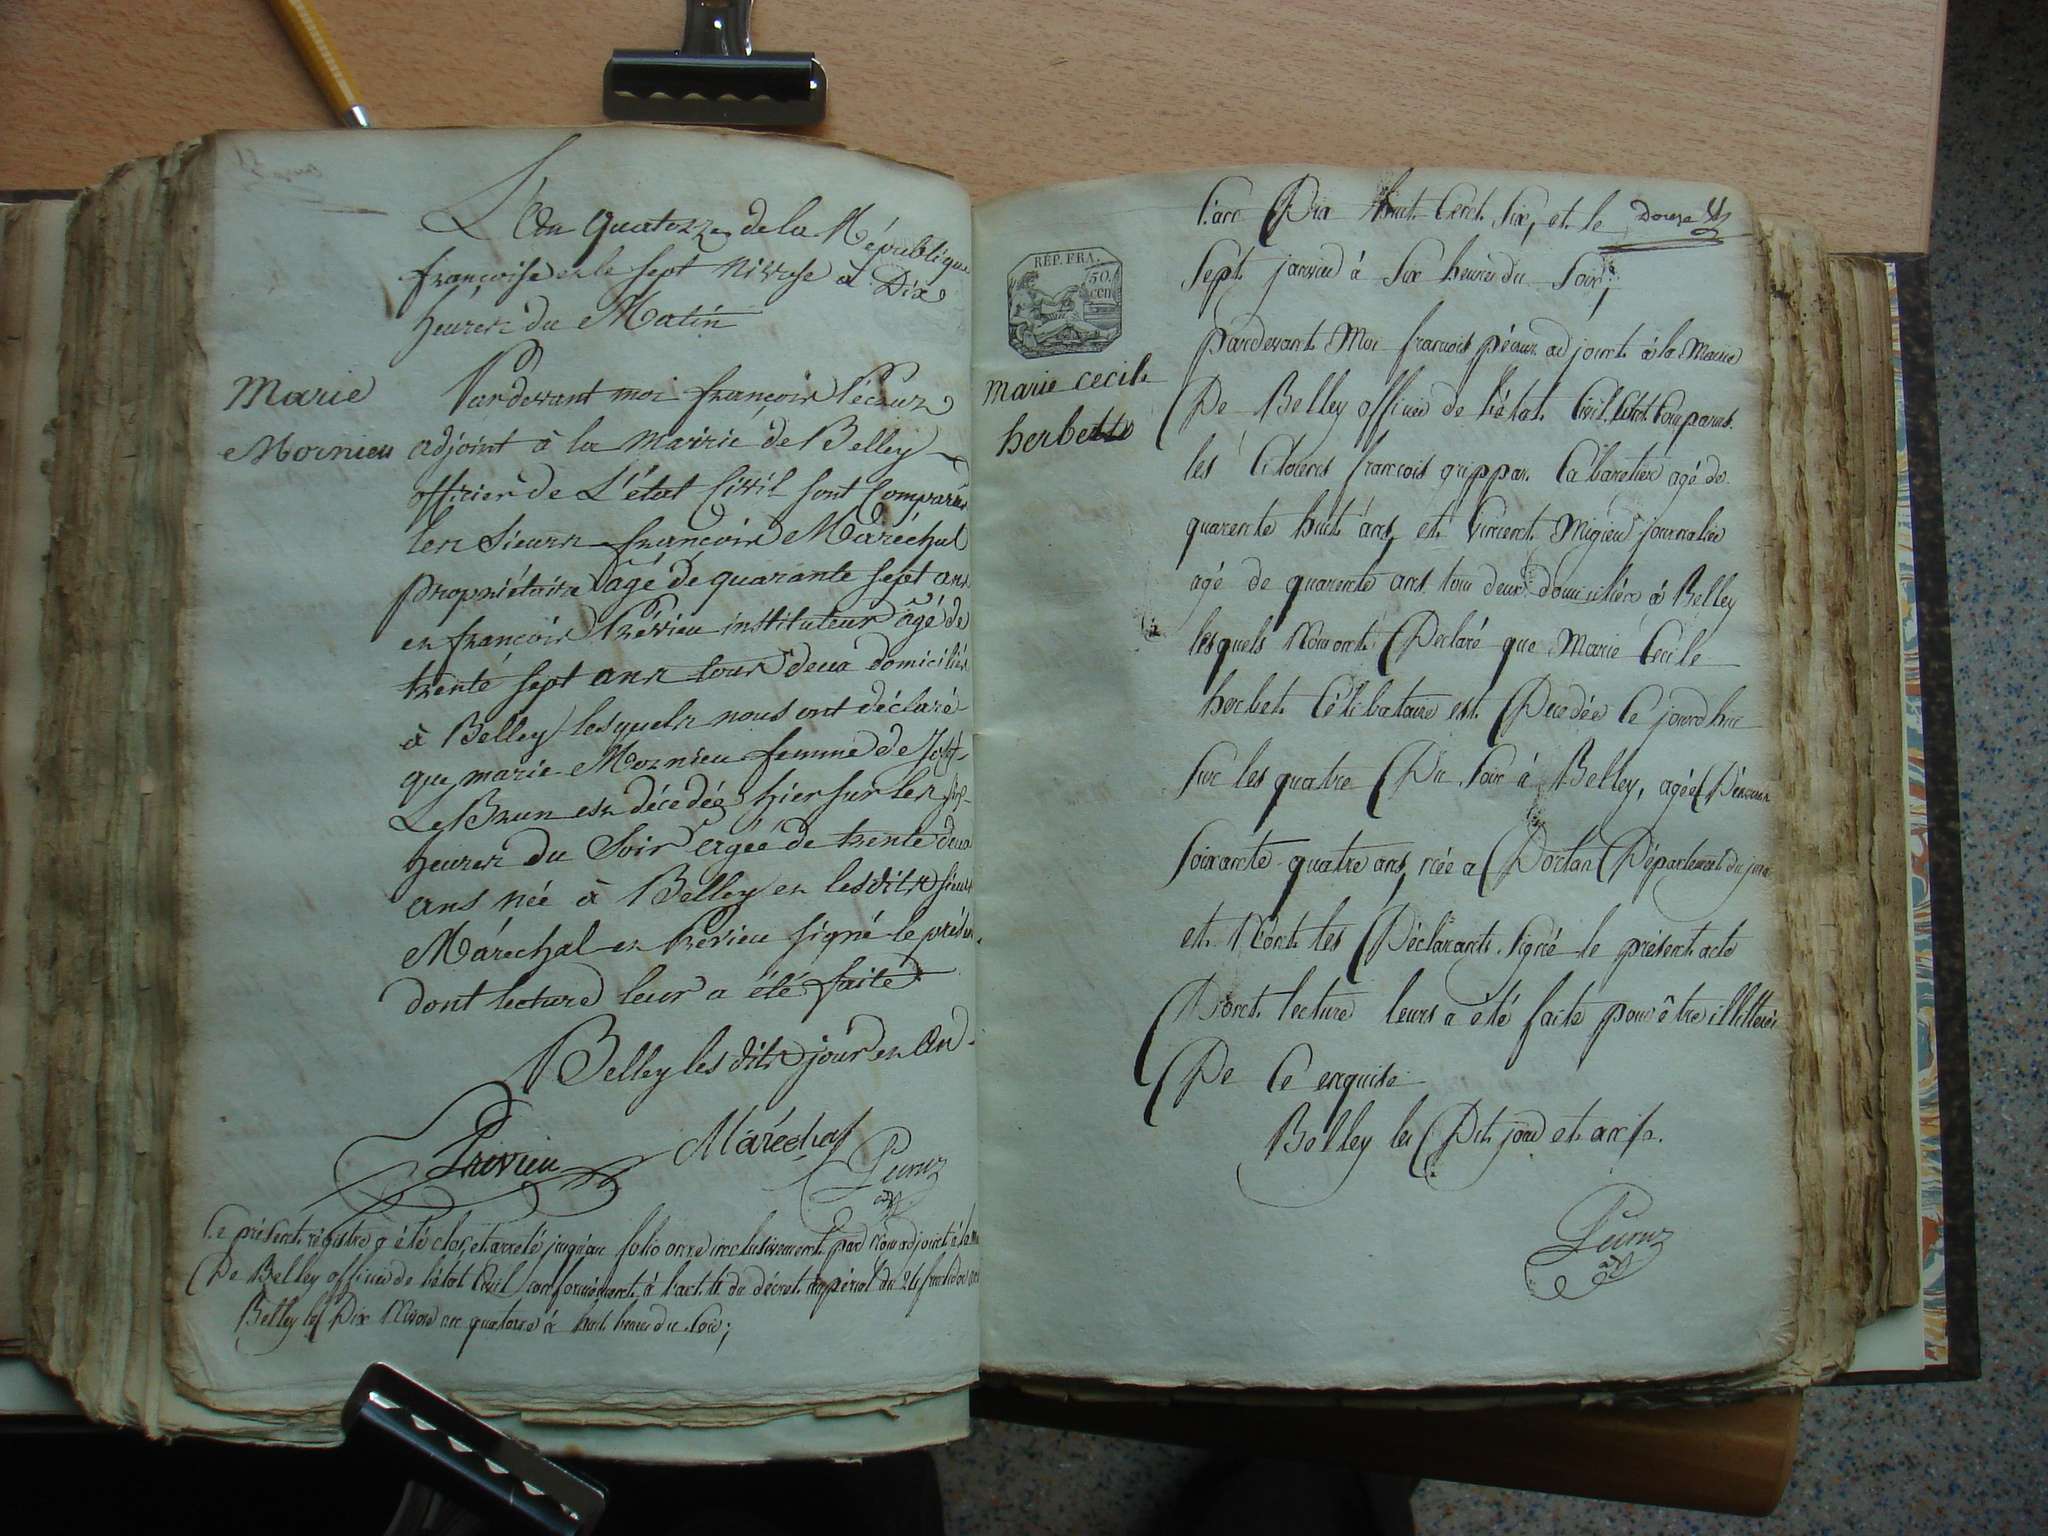 L'an quatorze de la République
françoise et le sept Nivose à Dix
heures du Matin
Marie
Mornieu
Pardevant moi françois Pécruz
adjoint à la mairie de Belley
officier de L'état Civil sont Comparus
les Sieurs françois Maréchal
propriétaire âgé de quarante sept ans
et françois Prévieu instituteur âgé de
trente sept ans tous deux domiciliés
à Belley lesquels nous ont déclaré
que marie Mornieu femme de
Le Brun est décedée hier sur les
heures du Soir agée de trente deux
ans née à Belley et lesdits sieurs
Maréchal et Prévieu signé le présent
dont lecture leur a été faite
Belley les dits jour et an
Prévieu
Maréchal
Ce présent régistre a été clos, et arreté jusqu'au folio onze inclusivement par Nous adjoint à la
De Belley officier de l'état Civil conformément à l'art du décret impérial du 24 fructidor
Belley le Dix Nivose an quatorze à huit heures du soir;
Douze
REP. FRA.
50.
cen
marie cecile
herbette
l'an Dix huit Cent Six, et le
Sept janvier à Six heures du Soir;
pardevant Moi francois adjoint à la Mairie
De Belley officier de l'état Civil sont comparus
les Citoiens francois grippar Cabaretier agé de
quarente huit ans, et Vincent Migieu journalier
agé de quarente ans tous deux domiciliés à Belley
lesquels Nous ont Déclaré que Marie Cecile
herbet Célibataire est Decedée Ce jourd'hui
Sur les quatre Du Soir à Belley, agée D'environ
Soixante quatre ans, née a Dortan Département du jura
et N'ont les Déclarants Signé le présent acte
Dont lecture leurs a été faite pour être illitterés
De Ce enquise
Belley les Dits jour et an